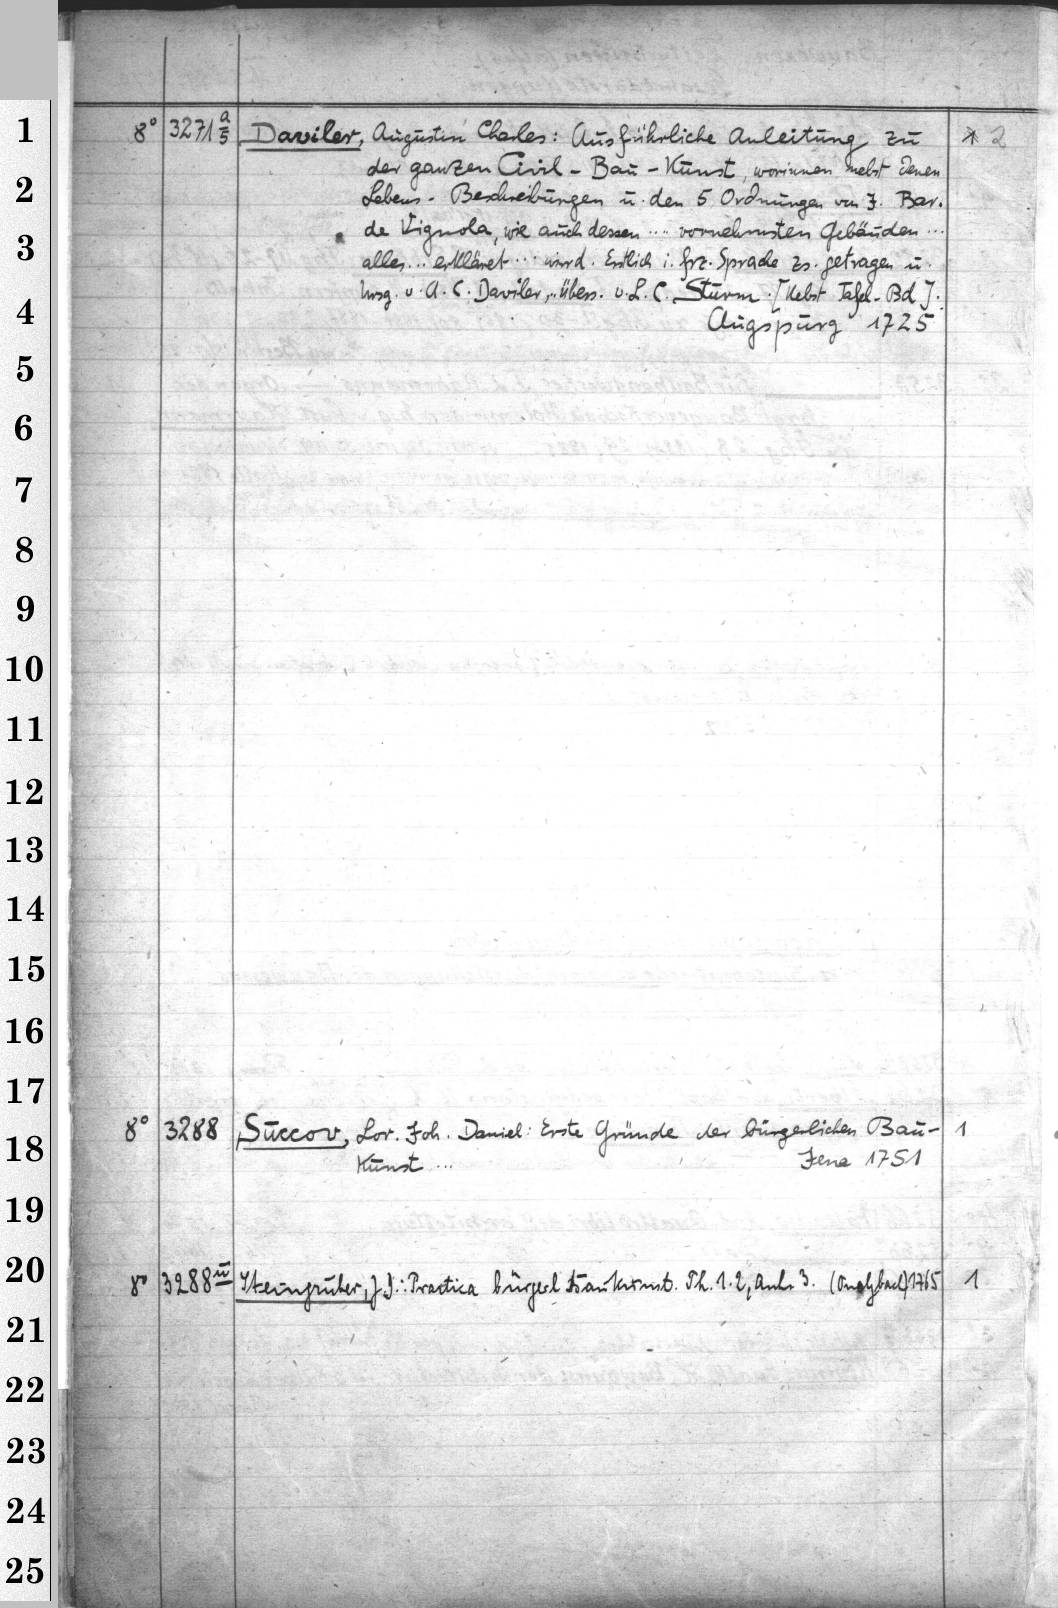 1
8° 3271 a/5 Daviler, Augustin Charles: Ausführliche Anleitung zu * 2
der ganzen Civil-Bau-Kunst, worinnen nebst denen
2
Lebens-Beschreibungen u. den 5 Ordnungen von J. Bar.
de Vignola, wie auch dessen ... vornehmsten Gebäuden ...
3
alles ... erkläret ... wird. Erstlich i. frz. Sprache zs. getragen u.
hrsg. v. A. C. Daviler, .. übers. v. L. C. Sturm. [Nebst Tafel-Bd].
4
Augspurg 1725
5
6
7
8
9
10
11
12
13
14
15
16
17
8° 3288 Succov, Lor. Joh. Daniel: Erste Gründe der bürgerlichen Bau- 1
18
Kunst ... Jena 1751
19
20
8° 3288 Steingruber, J. J.: Practica bürgerl Baukunst. Th. 1.2, Anh. 3. 1765 1
21
22
23
24
25